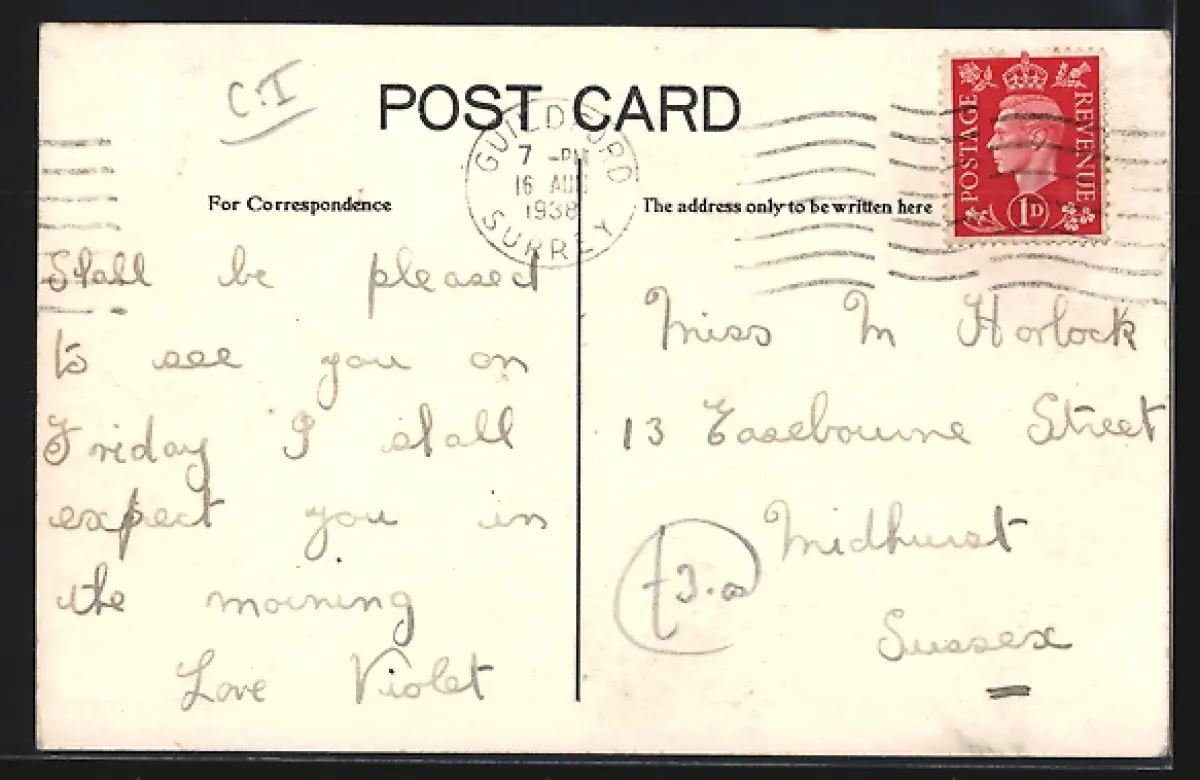 C.I
POST CARD
GUILDFORD
7 - PM
16 AUG
1938
SURREY
POSTAGE
REVENUE
1D
For Correspondence
The address only to be written here
Shall be pleased
to see you on
Friday I shall
expect you in
the morning
Love Violet
Miss M Horlock
13 Easebourne Street
Midhurst
Sussex